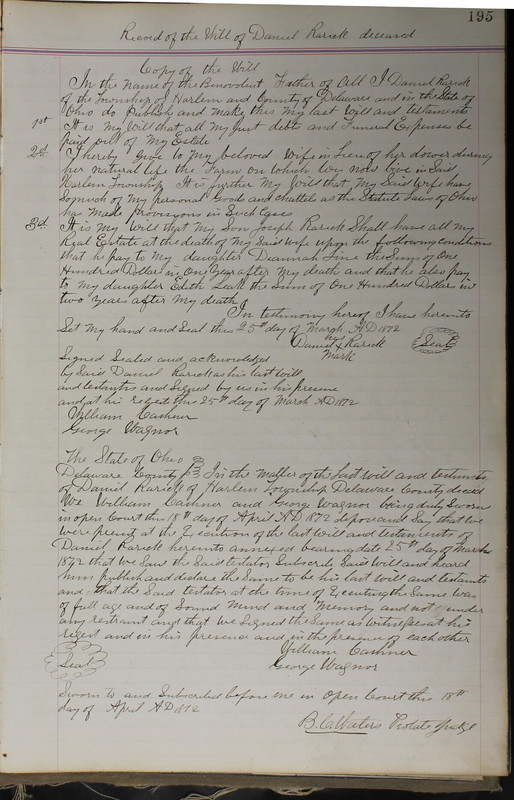 195
Record of the Will of Daniel Rarick deceased
Copy of the Will
In the name of the Benevolent Father of All I Daniel Rarick
of the Township of Harlem and County of Delaware and in the State of
Ohio do Publish and make this my last Will and testaments
1st It is my Will that all my Just debts and Funeral Expenses be
paid out of my Estate
2d I hereby give to my beloved Wife in lieu of her dower during
her natural life the Farm on which We now live in Said
Harlem Township It is further my Will that my Said Wife have
so much of my personal Goods and chattels as the Statute Laws of Ohio
has made provisions in Such Cases
3d It is my Will that my Son Joseph Rarick Shall have all my
Real Estate at the death of my Said Wife upon the following Conditions
that he pay to my daughter Diannah Line the Sum of One
Hundred Dollars in One Year after my death and that he also pay
to my daughter Edith Leak the Sum of One Hundred Dollars in
two Year after my death
In testimony hereof I have hereunto
Set my hand and Seal this 25th day of March AD 1872
his
Daniel X Rarick Seal
Mark
Signed Sealed and acknowledged
by Said Daniel Rarick as his last will
and testaments and Signed by us in his presence
and at his request this 25th day of March AD 1872
William Cashner
George Wagnor
The State of Ohio
Delaware County In the matter of the last will and testiments
of Daniel Rarick of Harlem Township Delaware County deced
We William Cashner and George Wagnor being duly Sworn
in open Court this 18th day of April AD 1872 depose and Say that we
were present at the Execution of the last will and testaments of
Daniel Rarick hereunto annexed bearing date 25th day of March
1872 that we Saw the Said testator Subscribe Said Will and heard
him publish and declare the Same to be his last will and testaments
and that the Said testator at the time of Executing the Same Was
of full age and of Sound Mind and Memory and not under
any restraint and that we Signed the Same as Witnesses at his
reqest and in his presence and in the presence of each other
William Cashner
Seal George Wagnor
Sworn to and Subscribed before me in Open Court this 18th
day of April AD 1872
B.C. Waters Probate Judge